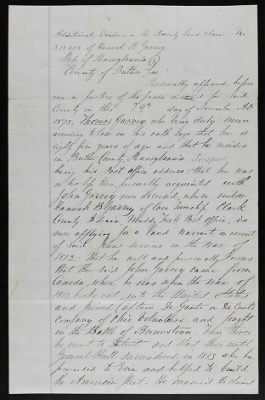 Additional Evidence in the Bounty Land Claim No
of Hannah B. Garvey
State of Pennsylvania
County of Butler ss.
Personally appeared before
me a justice of the peace in and for said
County on this day of November A.D.
Thomas Garvey who being duly sworn
according to law on his oath says that he is
eighty five years of age and that he resides
in Butler County Pennsylvania
being his Post office address that he was
in his life time personally acquainted with
John Garvey now deceased, whose widow
Hannah B Garvey of Township Clark
County Post office, is
now applying for a land warrant on account
of said John's services in the war of
1812 - that he well and personally knows
that the said John Garvey came from
Canada, where he was when the war of
1812 broke out, into the United States
and joined Captain
Company of Ohio Volunteers and fought
in the Battle of Brownstown. From there
he went to Detroit and was there until
General Hull surrendered in 1813 when he
proceeded to Erie and helped to build
the American fleet. He married the